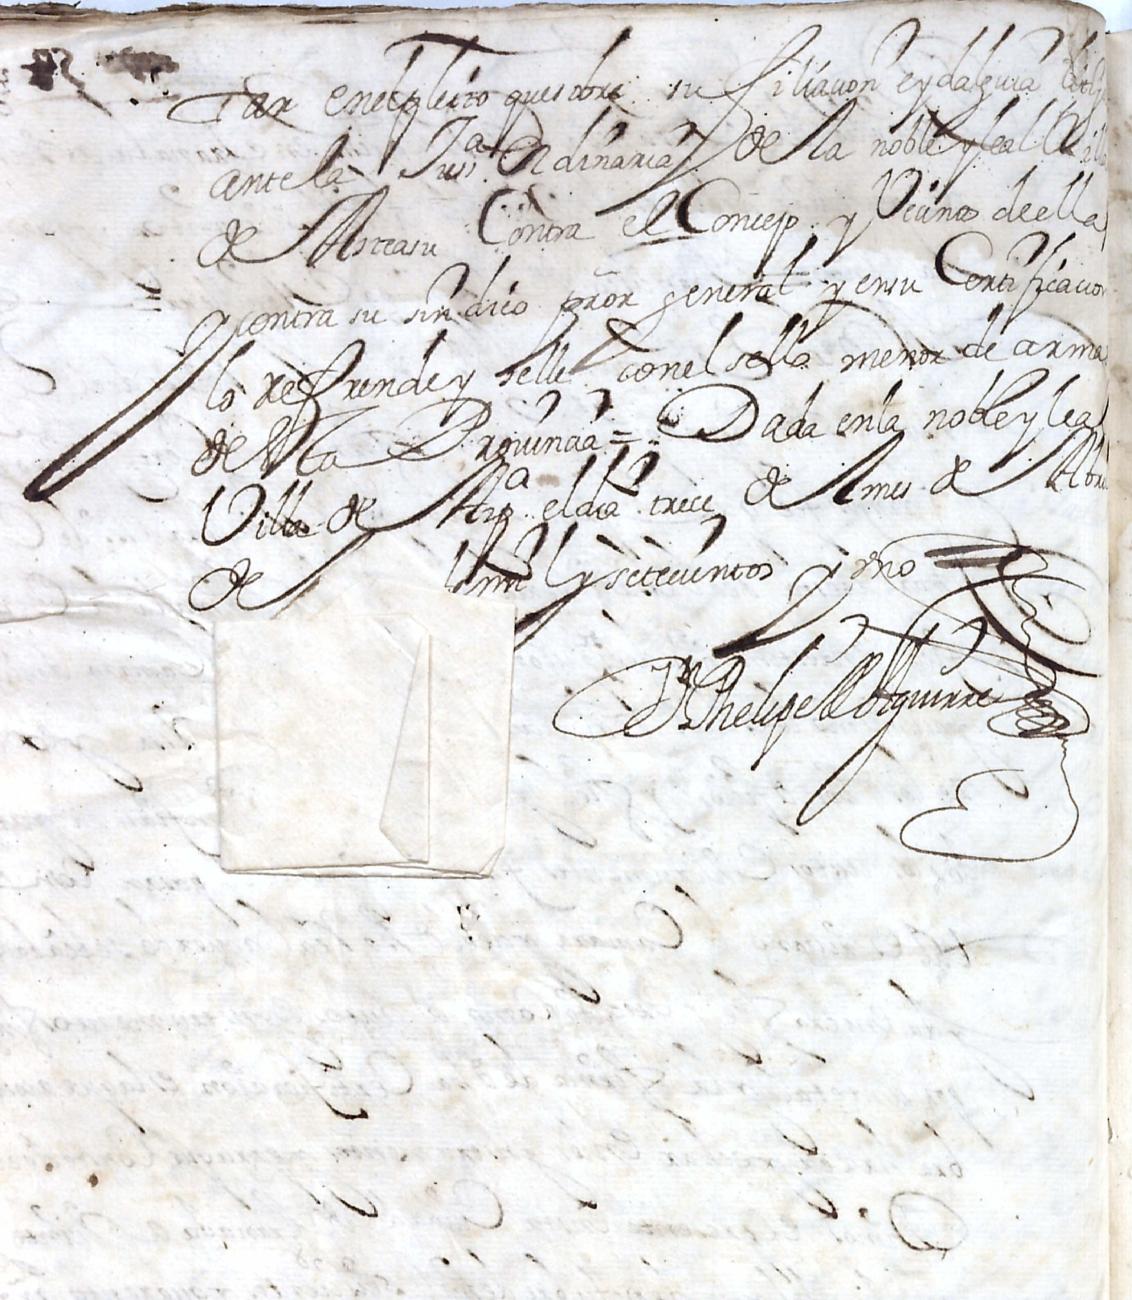 tar en el pleito que sobre su filiacion e ydalguia litiga
ante la Jussa ordinaria de la noble y leal Villa
de Asteasu Contra el Concejo y Vecinos de ella
y contra su sindico pror general y en su Certificacion
lo refrende y selle con el sello menor de armas
de esta Provincia = Dada en la noble y leal
Villa de el dia trece de mes de Abril
de mil y setecientos y
Dn Phelipe de Aguirre